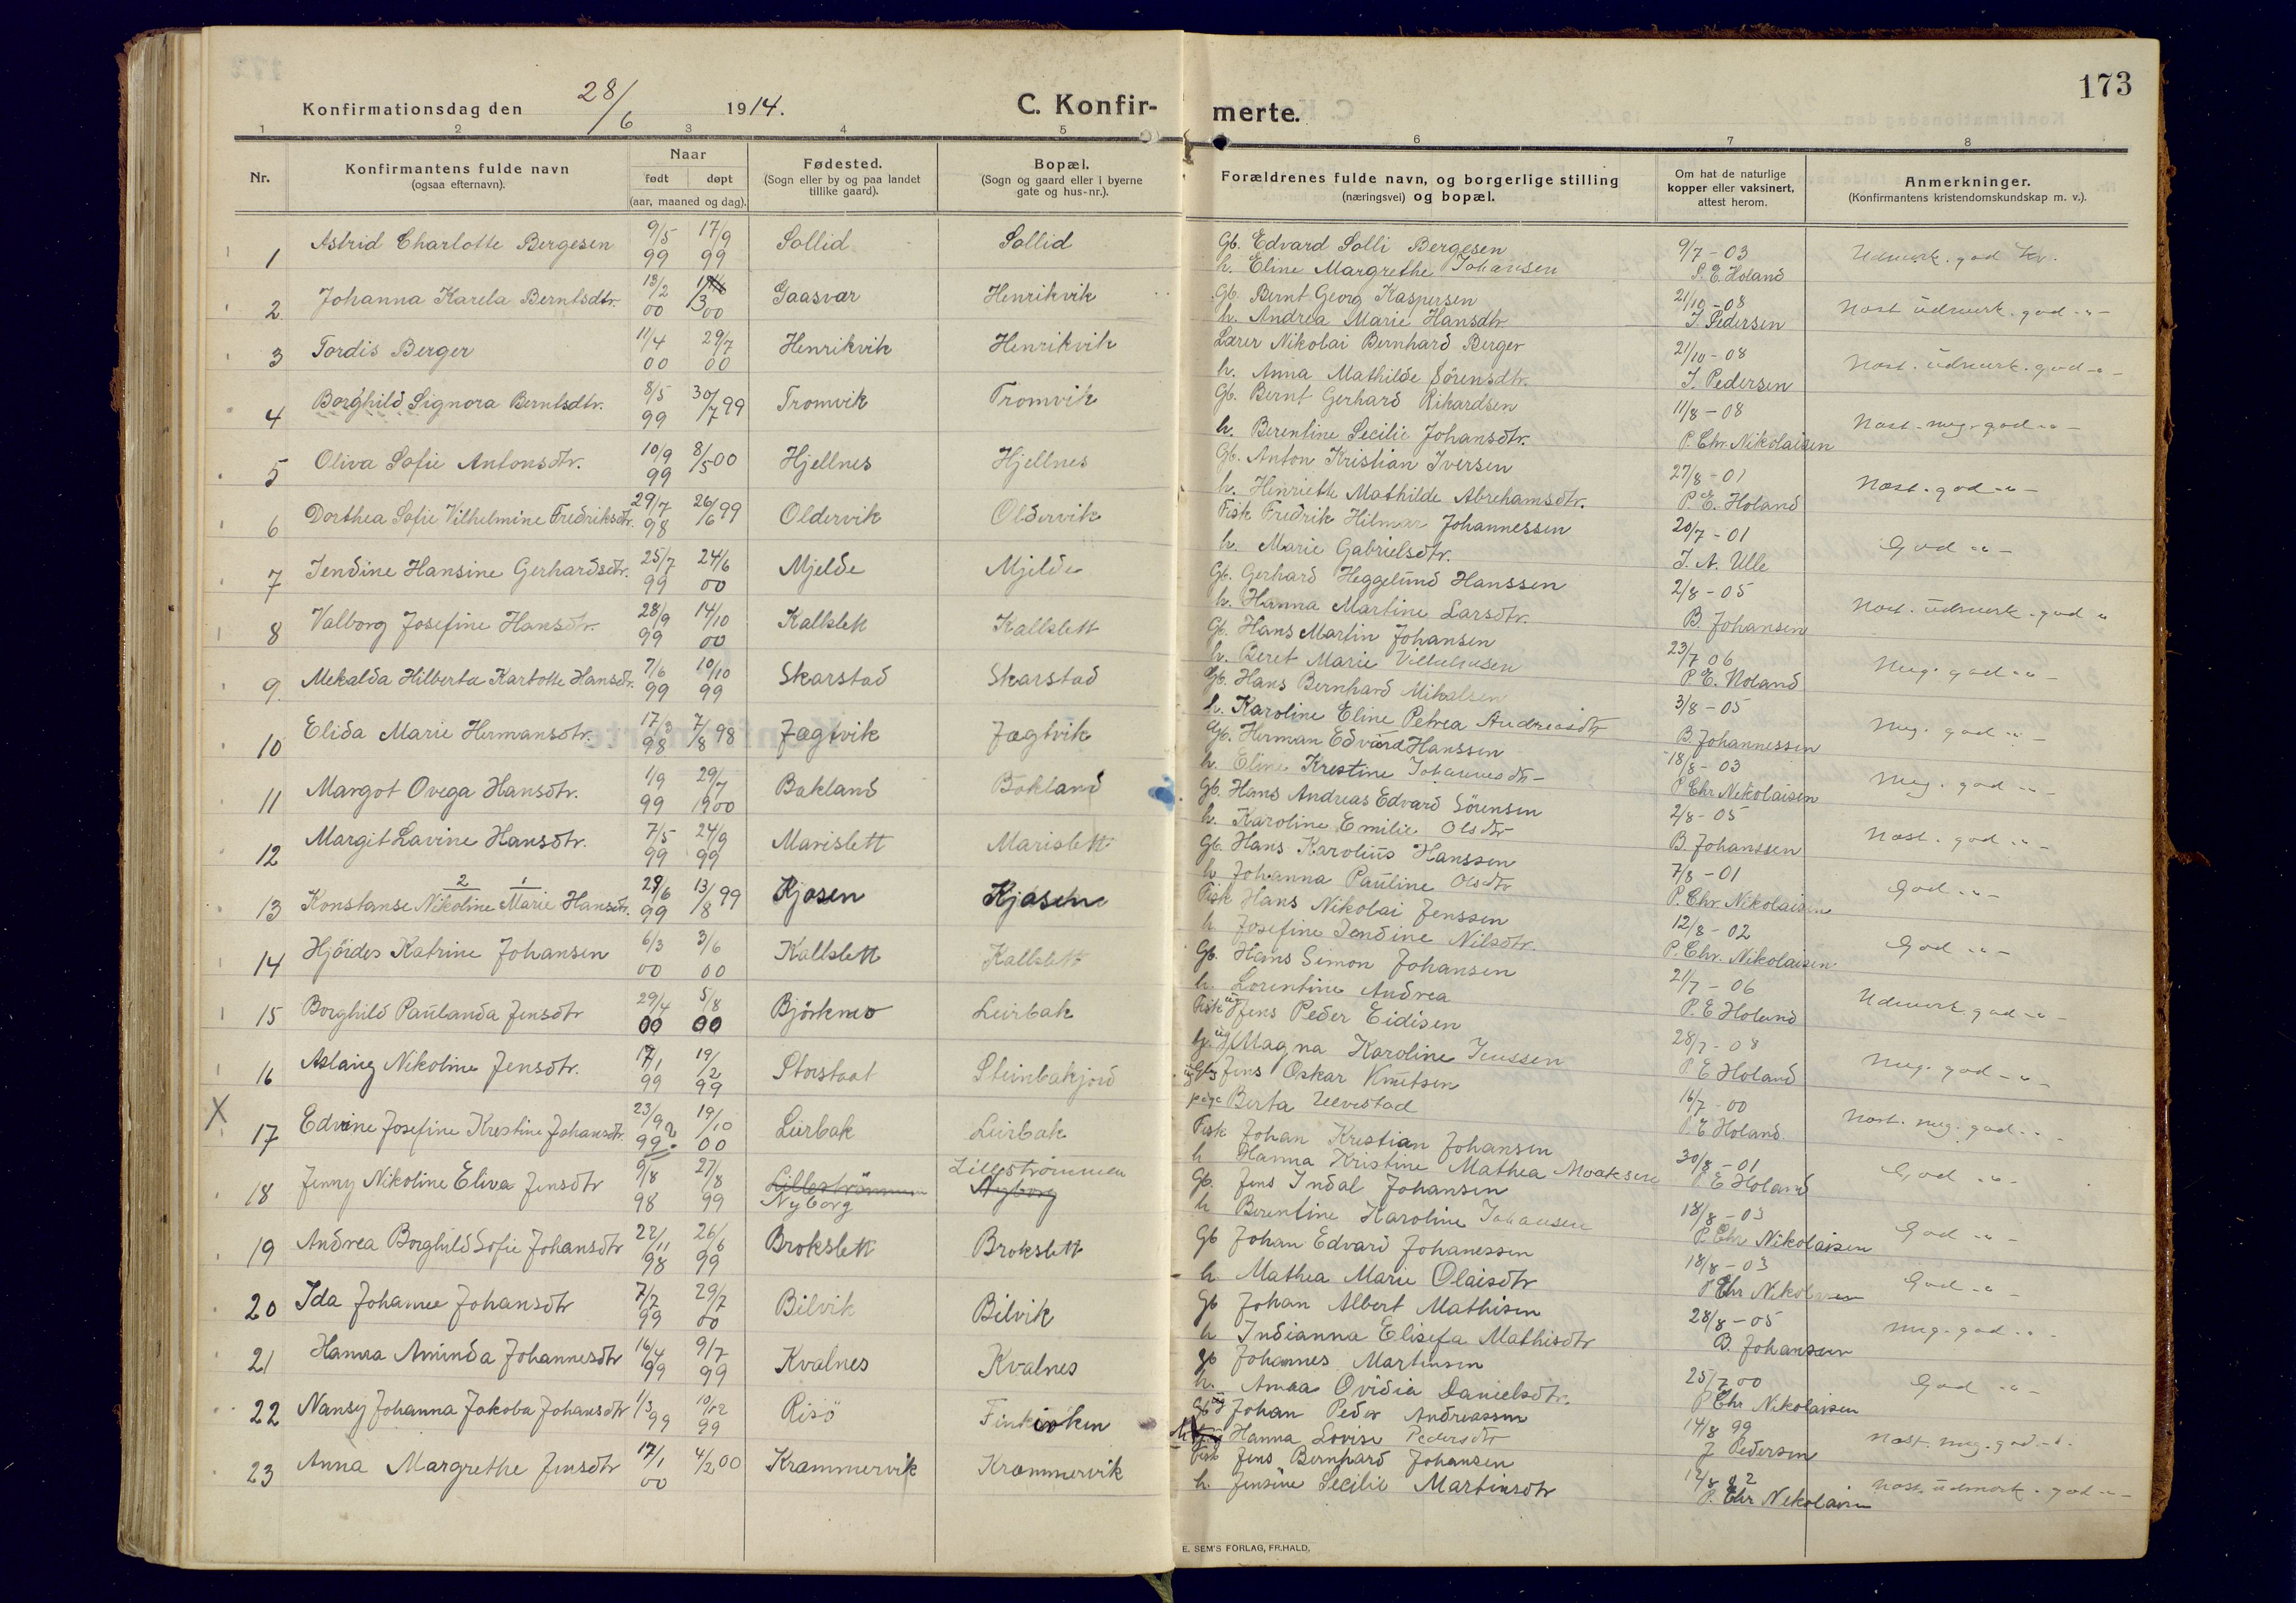 173
Konfirmationsdag den 28/6 1914.
C. Konfir-merte.
1 2 3 4 5 6 7 8
Nr.
Konfirmantens fulde navn (ogsaa efternavn).
Naar født døpt (aar, maaned og dag).
Fødested. (Sogn eller by og paa landet tillike gaard).
Bopæl. (Sogn og gaard eller i byerne gate og hus-nr.).
Forældrenes fulde navn, og borgerlige stilling (næringsvei) og bopæl.
Om hat de naturlige kopper eller vaksinert, attest herom.
Anmerkninger. (Konfirmantens kristendomskundskap m. v.).
1 Astrid Charlotte Bergesen 9/5 99 17/9 99 Sollid Sollid Gb. Edvard Solli Bergesen 9/7-03 Udmerk. god kr.
h. Eline Margrethe Johansen P. E. Holand
2 Johanna Karela Berntsdtr. 13/2 00 13 00 Gaasvær Henrikvik Gb. Bernt Georg Kaspersen 21/10-08 Nost udmerk. god -"-
h. Andrea Marie Hansdtr. J. Pedersen
3 Tordis Berger 11/4 00 29/7 00 Henrikvik Henrikvik Lærer Nikolai Bernhard Berger 21/10-08 Nost. udmerk. god -"-
h. Anna Mathilde Sörensdtr. J. Pedersen
4 Borghild Signora Berntsdtr. 8/5 99 30/7 99 Tromvik Tromvik Gb. Bernt Gerhard Rikardsen 11/8-08 Nost. meg. god -"-
h. Berentine Secilie Johansdtr. P. Chr. Nikolaisen
5 Oliva Sofie Antonsdtr. 10/9 99 8/5 00 Hjellnes Hjellnes Gb. Anton Kristian Iversen 27/8-01 Nost. god -"-
h. Henriette Mathilde Abrehamsdtr. P. E. Holand
6 Dorthea Sofie Vilhelmine Fredriksdtr. 29/7 98 26/6 99 Oldervik Oldervik Fisk Fredrik Hilmar Johannessen 20/7-01 God -"-
h. Marie Gabrielsdtr. J. A. Ulle
7 Jendine Hansine Gerhardsdtr. 25/7 99 24/6 00 Mjelde Mjelde Gb. Gerhard Heggelund Hanssen 2/8-05 Nost. udmerk. god "
h. Hanna Martine Larsdtr. B. Johansen
8 Valborg Josefine Hansdtr. 28/9 99 14/10 00 Kallslett Kallslett Gb. Hans Martin Johansen 23/7 06 Meg. god -"-
h. Beret Marie Vilhelmsen P. E. Holand
9 Mekalda Hilberta Karlotte Hansdtr. 7/6 99 10/10 99 Skarstad Skarstad Gb. Hans Bernhard Mikalsen 3/8-05 Meg. god -"-
h. Karoline Eline Petrea Andreasdtr B Johannessen
10 Elida Marie Hermansdtr. 17/3 98 7/8 98 Jægtvik Jægtvik Gb. Herman Edvard Hanssen 18/8-03 Meg. god -"-
h. Eline Krestine Johannesdtr- P Chr Nikolaisen
11 Margot Ovega Hansdtr. 1/9 99 29/7 1900 Bakland Bakland Gb. Hans Andreas Edvard Sörensen 2/8-05 Nost. god -"-
h. Karoline Emilie Olsdtr B. Johanssen
12 Margit Lavine Hansdtr. 7/5 99 24/9 99 Marislett Marislett Gb. Hans Karolius Hanssen 7/8-01 God -"-
h Johanna Pauline Olsdtr P. Chr Nikolaisen
2 1
13 Konstanse Nikoline Marie Hansdtr. 29/6 99 13/8 99 Kjosen Kjosen Fisk Hans Nikolai Jenssen 12/8-02 God -"-
h Josefine Jendine Nilsdtr. P. Chr. Nikolaisen
14 Hjördes Katrine Johansen 6/3 00 3/6 00 Kallslett Kallslett Gb. Hans Simon Johansen 21/7-06 Udmerk god -"-
h. Lorentine Andrea P. E Holand
15 Borghild Paulanda Jensdtr 29/4 00 5/8 00 Björkmo Leirbak Fisk ug Jens Peder Eidisen 28/7-08 Meg. god -"-
ug Magna Karoline Jenssen P E Holand
16 Aslaug Nikoline Jensdtr. 17/1 99 19/2 99 Storstaat Steinbakjord ug Jens Oskar Knutsen 16/7-00 Nost. meg. god -"-
pige Berta Ulvestad P. E Holand.
X 17 Edvine Josefine Krestine Johansdtr. 23/9 99? 19/10 00 Leirbak Leirbak Fisk Johan Kristian Johansen 30/8-01 God -"-
h Hanna Kristine Mathea Moaksen P E Holand
18 Jenny Nikoline Eliva Jensdtr 9/8 98 27/8 99 Lilleströmmen Nyborg Lilleströmmen Nyborg Gb. Jens Indal Johansen 18/8-03 God -"-
h Berentine Karoline Johansen P. Chr Nikolaisen
19 Andrea Borghild Sofie Johansdtr 22/11 98 26/6 99 Brokslett Brokslett Gb Johan Edvard Johanessen 18/8-03 God -"-
h. Mathea Marie Olaisdtr P Chr Nikolaisen
20 Ida Johanne Johansdtr 7/7 99 29/7 00 Bilvik Bilvik Gb Johan Albert Mathisen 28/8-05 Meg. god -"-
h Indianna Elisefa Mathisdtr B. Johansen
21 Hanna Aminda Johannesdtr 16/4 99 9/7 99 Kvalnes Kvalnes gb Johannes Martinsen 25/7 00 God -"-
h. Amaa Ovidia Danielsdtr. P Chr Nikolaisen
22 Nansy Johanna Jakoba Johansdtr 1/3 99 10/12 99 Risö Finkroken Gb ug Johan Peder Andreassen 14/8 99 Nost. meg. god -"-
Hanna Lovise Pedersdtr J Pedersen
23 Anna Margrethe Jensdtr 17/1 00 4/2 00 Krammervik Krammervik Fisk Jens Bernhard Johansen 12/8 02 Nost. udmerk. god -"-
h. Jensine Secilie Martinsdtr P. Chr Nikolaisen
E. SEM'S FORLAG, FR.HALD.